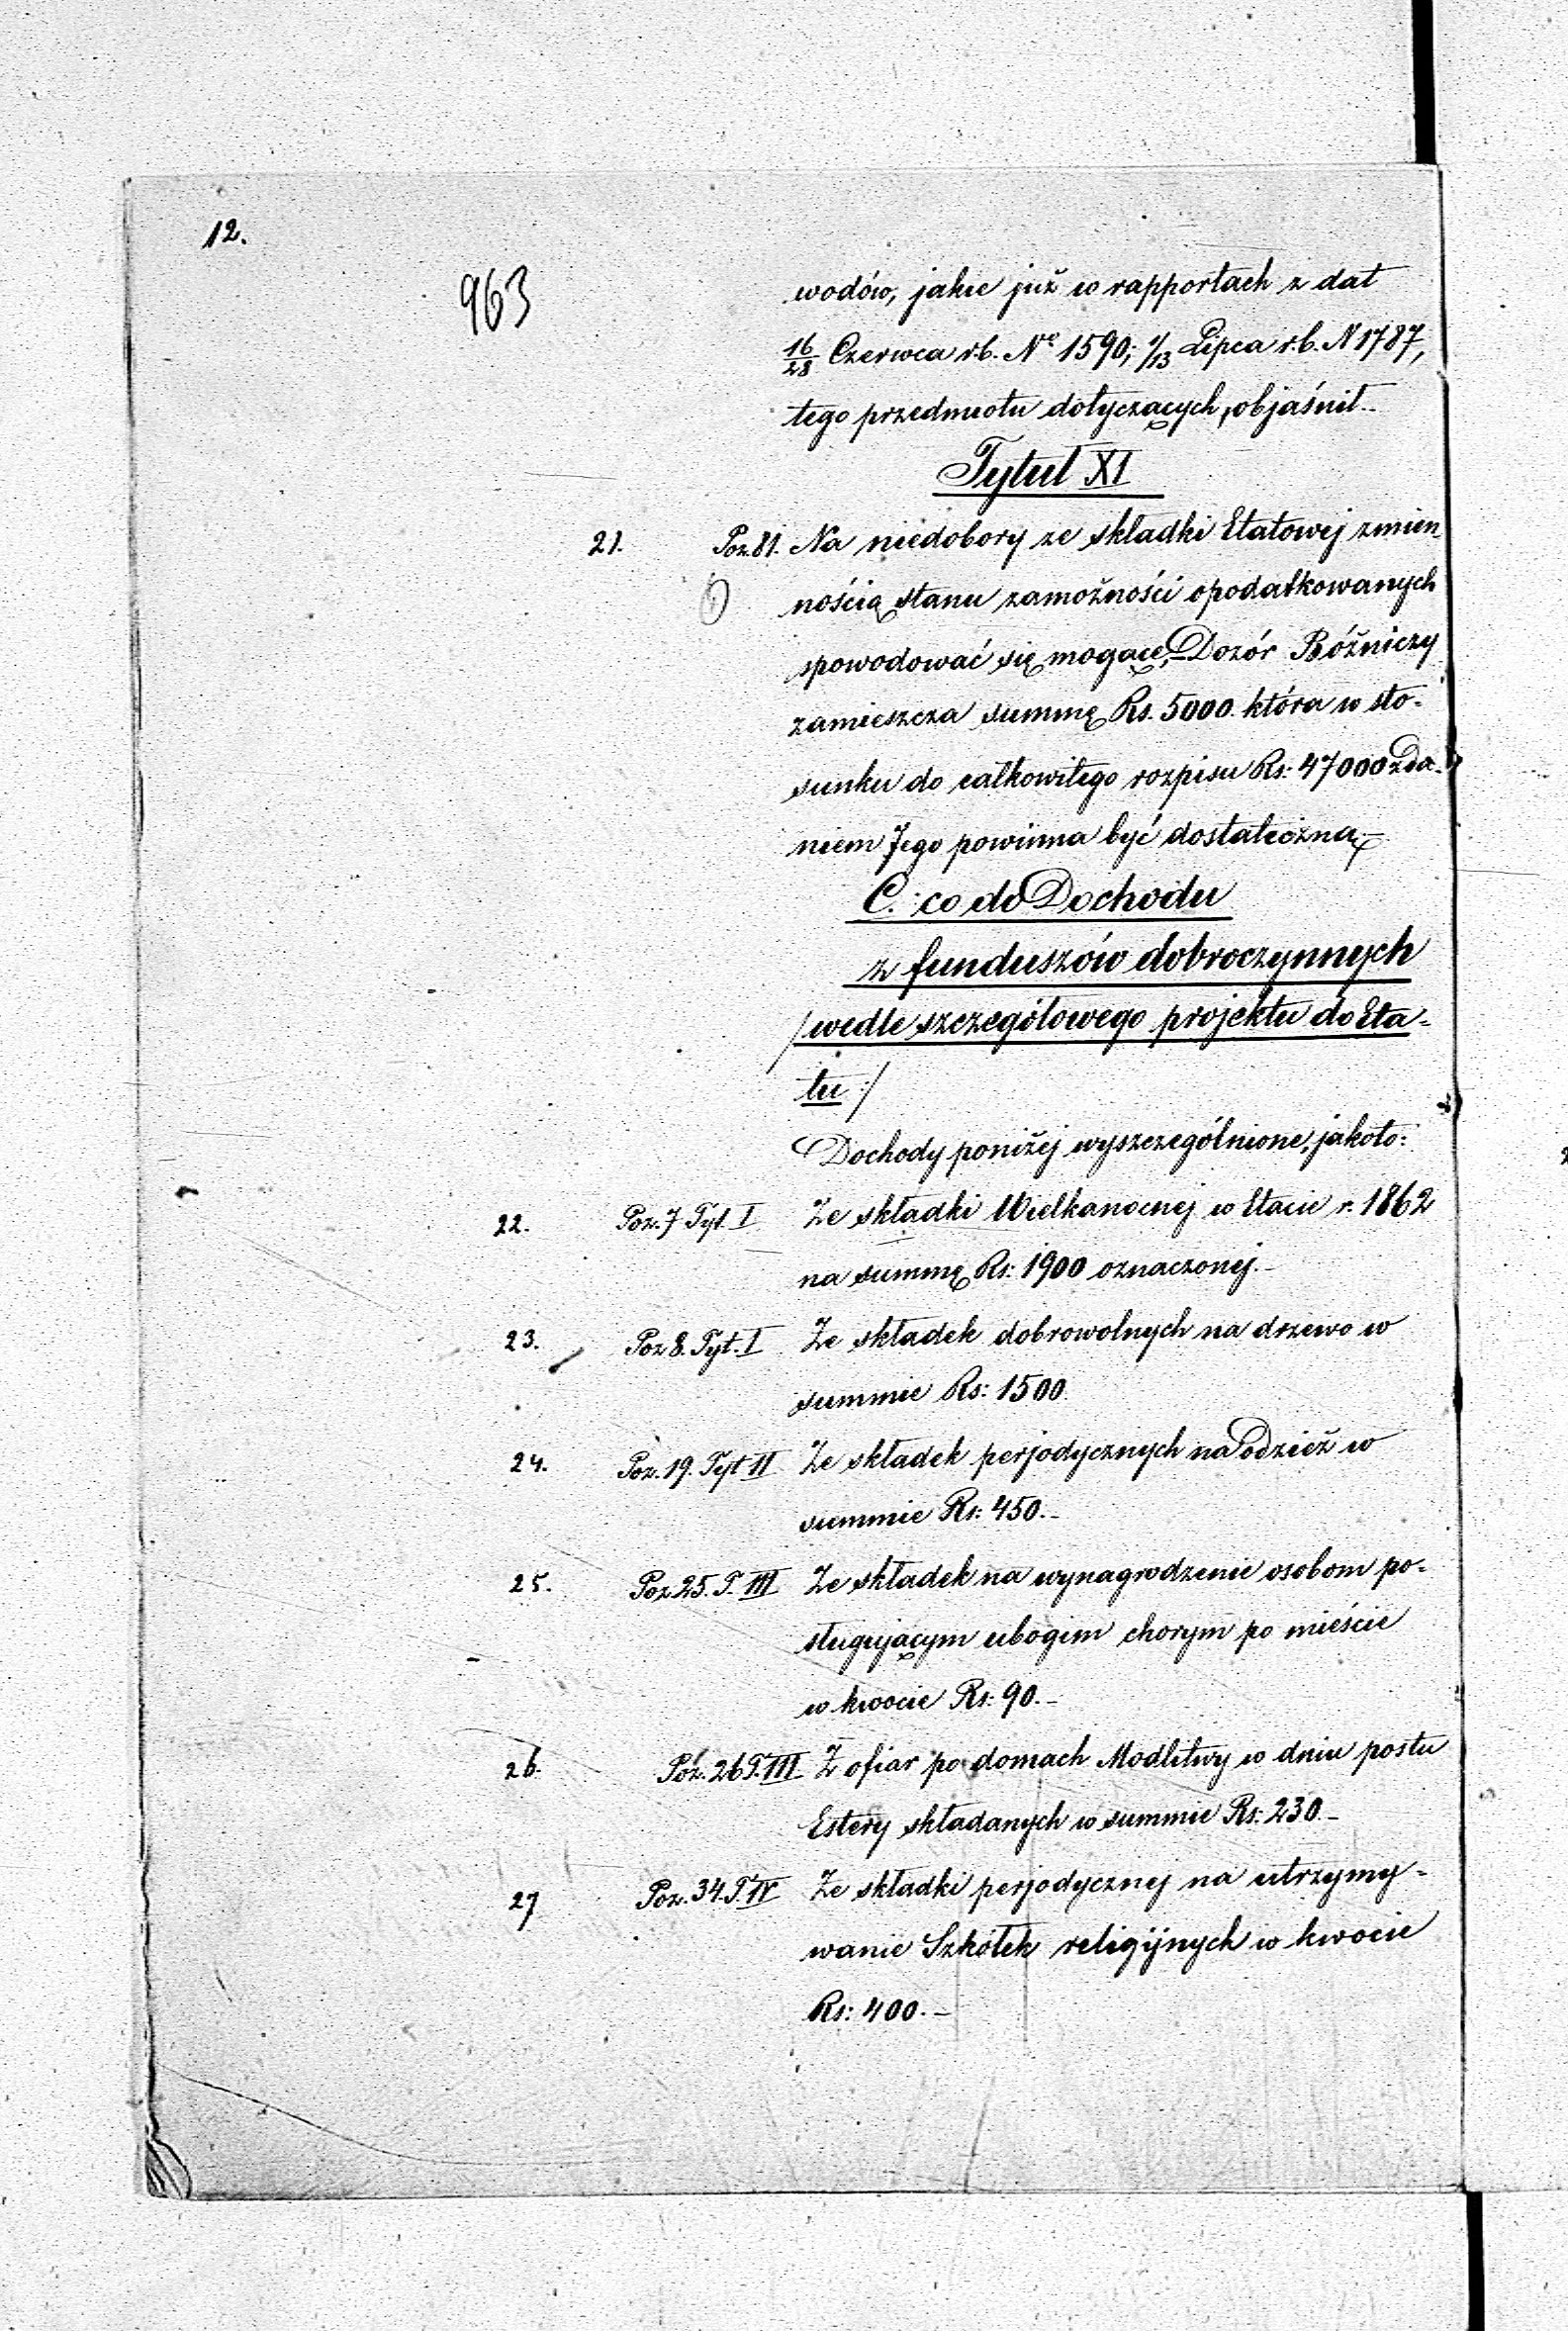 12.
963
wodów, jakie już w rapportach z dat
16/28 Czerwca r.b. Nº 1590; 1/13 Lipca r.b. N 1787,
tego przedmiotu dotyczących, objaśnił.
Tytuł XI
21. Poz. 81. Na niedobory ze składki Etatowej zmien-
nością stanu zamożności opodatkowanych
spowodować się mogące, Dozór Bóżniczy
zamieszcza summę Rs. 5000. która w sto-
sunku do całkowitego rozpisu Rs: 47000 zda-
niem Jego powinna być dostateczną.-
C. co do Dochodu
z funduszów dobroczynnych
/wedle szczegółowego projektu do Eta-
tu:/
Dochody poniżej wyszczególnione, jakoto:
22. Poz. 7 Tyt. I Ze składki Wielkanocnej w Etacie r. 1862
na summę Rs: 1900 oznaczonej.-
23. Poz 8. Tyt. I Ze składek dobrowolnych na drzewo w
summie Rs: 1500.
24. Poz. 19. Tyt II Ze składek perjodycznych na Odzież w
summie Rs: 450.-
25. Poz 25. T. III Ze składek na wynagrodzenie osobom po-
sługującym ubogim chorym po mieście
w kwocie Rs: 90.-
26. Poz. 26 T. III Z ofiar po domach Modlitwy w dniu postu
Estery składanych w summie Rs: 230.-
27 Poz. 34. T. IV Ze składki perjodycznej na utrzymy-
wanie Szkółek religijnych w kwocie
Rs: 400.-